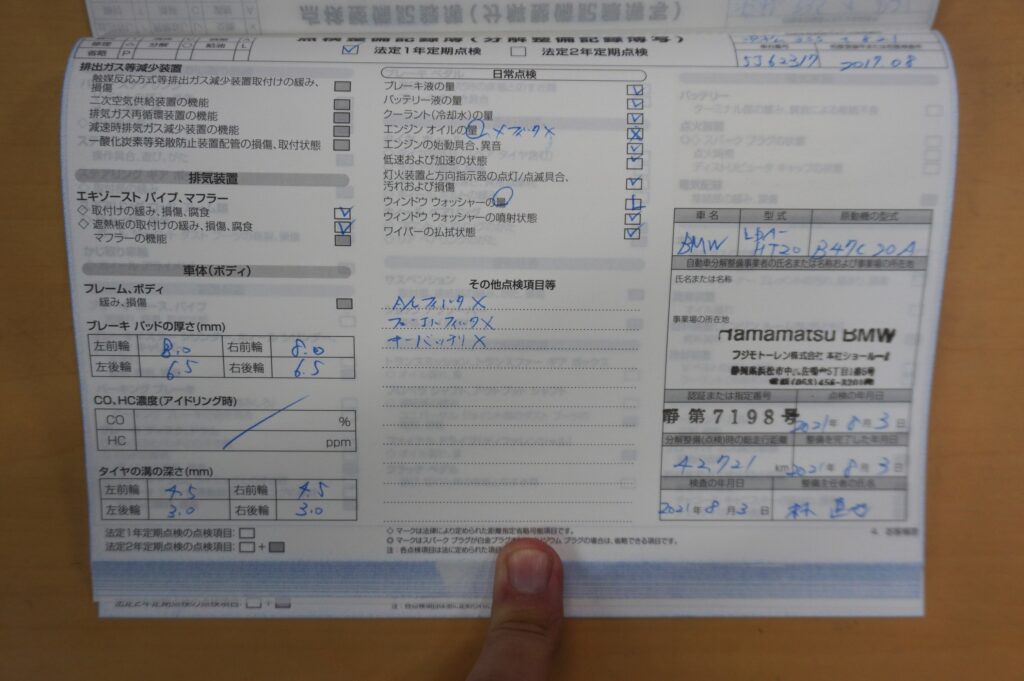 点検整備記録簿(分解整備記録簿写)
省略 P
法定1年定期点検 法定2年定期点検
5J62317 2017.08
排出ガス等減少装置
触媒反応方式等排出ガス減少装置取付けの緩み、
損傷
二次空気供給装置の機能
排気ガス再循環装置の機能
減速時排気ガス減少装置の機能
一酸化炭素等発散防止装置配管の損傷、取付状態
排気装置
エキゾースト パイプ、マフラー
◇ 取付けの緩み、損傷、腐食
◇ 遮熱板の取付けの緩み、損傷、腐食
マフラーの機能
車体(ボディ)
フレーム、ボディ
緩み、損傷
ブレーキ パッドの厚さ(mm)
左前輪 8.0 右前輪 8.0
左後輪 6.5 右後輪 6.5
CO、HC濃度(アイドリング時)
CO %
HC ppm
タイヤの溝の深さ(mm)
左前輪 4.5 右前輪 4.5
左後輪 3.0 右後輪 3.0
法定1年定期点検の点検項目:
法定2年定期点検の点検項目: +
日常点検
ブレーキ液の量
バッテリー液の量
クーラント(冷却水)の量
エンジン オイルの量
エンジンの始動具合、異音
低速および加速の状態
灯火装置と方向指示器の点灯/点滅具合、
汚れおよび損傷
ウィンドウ ウォッシャーの量
ウィンドウ ウォッシャーの噴射状態
ワイパーの払拭状態
その他点検項目等
◇ マークは法律により定められた距離指定省略可能項目です。
車名 型式 原動機の型式
BMW LDA-HT20 B47C20A
自動車分解整備事業者の氏名または名称および事業場の所在地
氏名または名称
事業場の所在地
Hamamatsu BMW
フジモトーレン株式会社 本社ショールーム
認証または指定番号 点検の年月日
静第7198号 2021年8月3日
分解整備(点検)時の総走行距離 整備を完了した年月日
42,721 km 2021年8月3日
検査の年月日 整備主任者の氏名
2021年8月3日